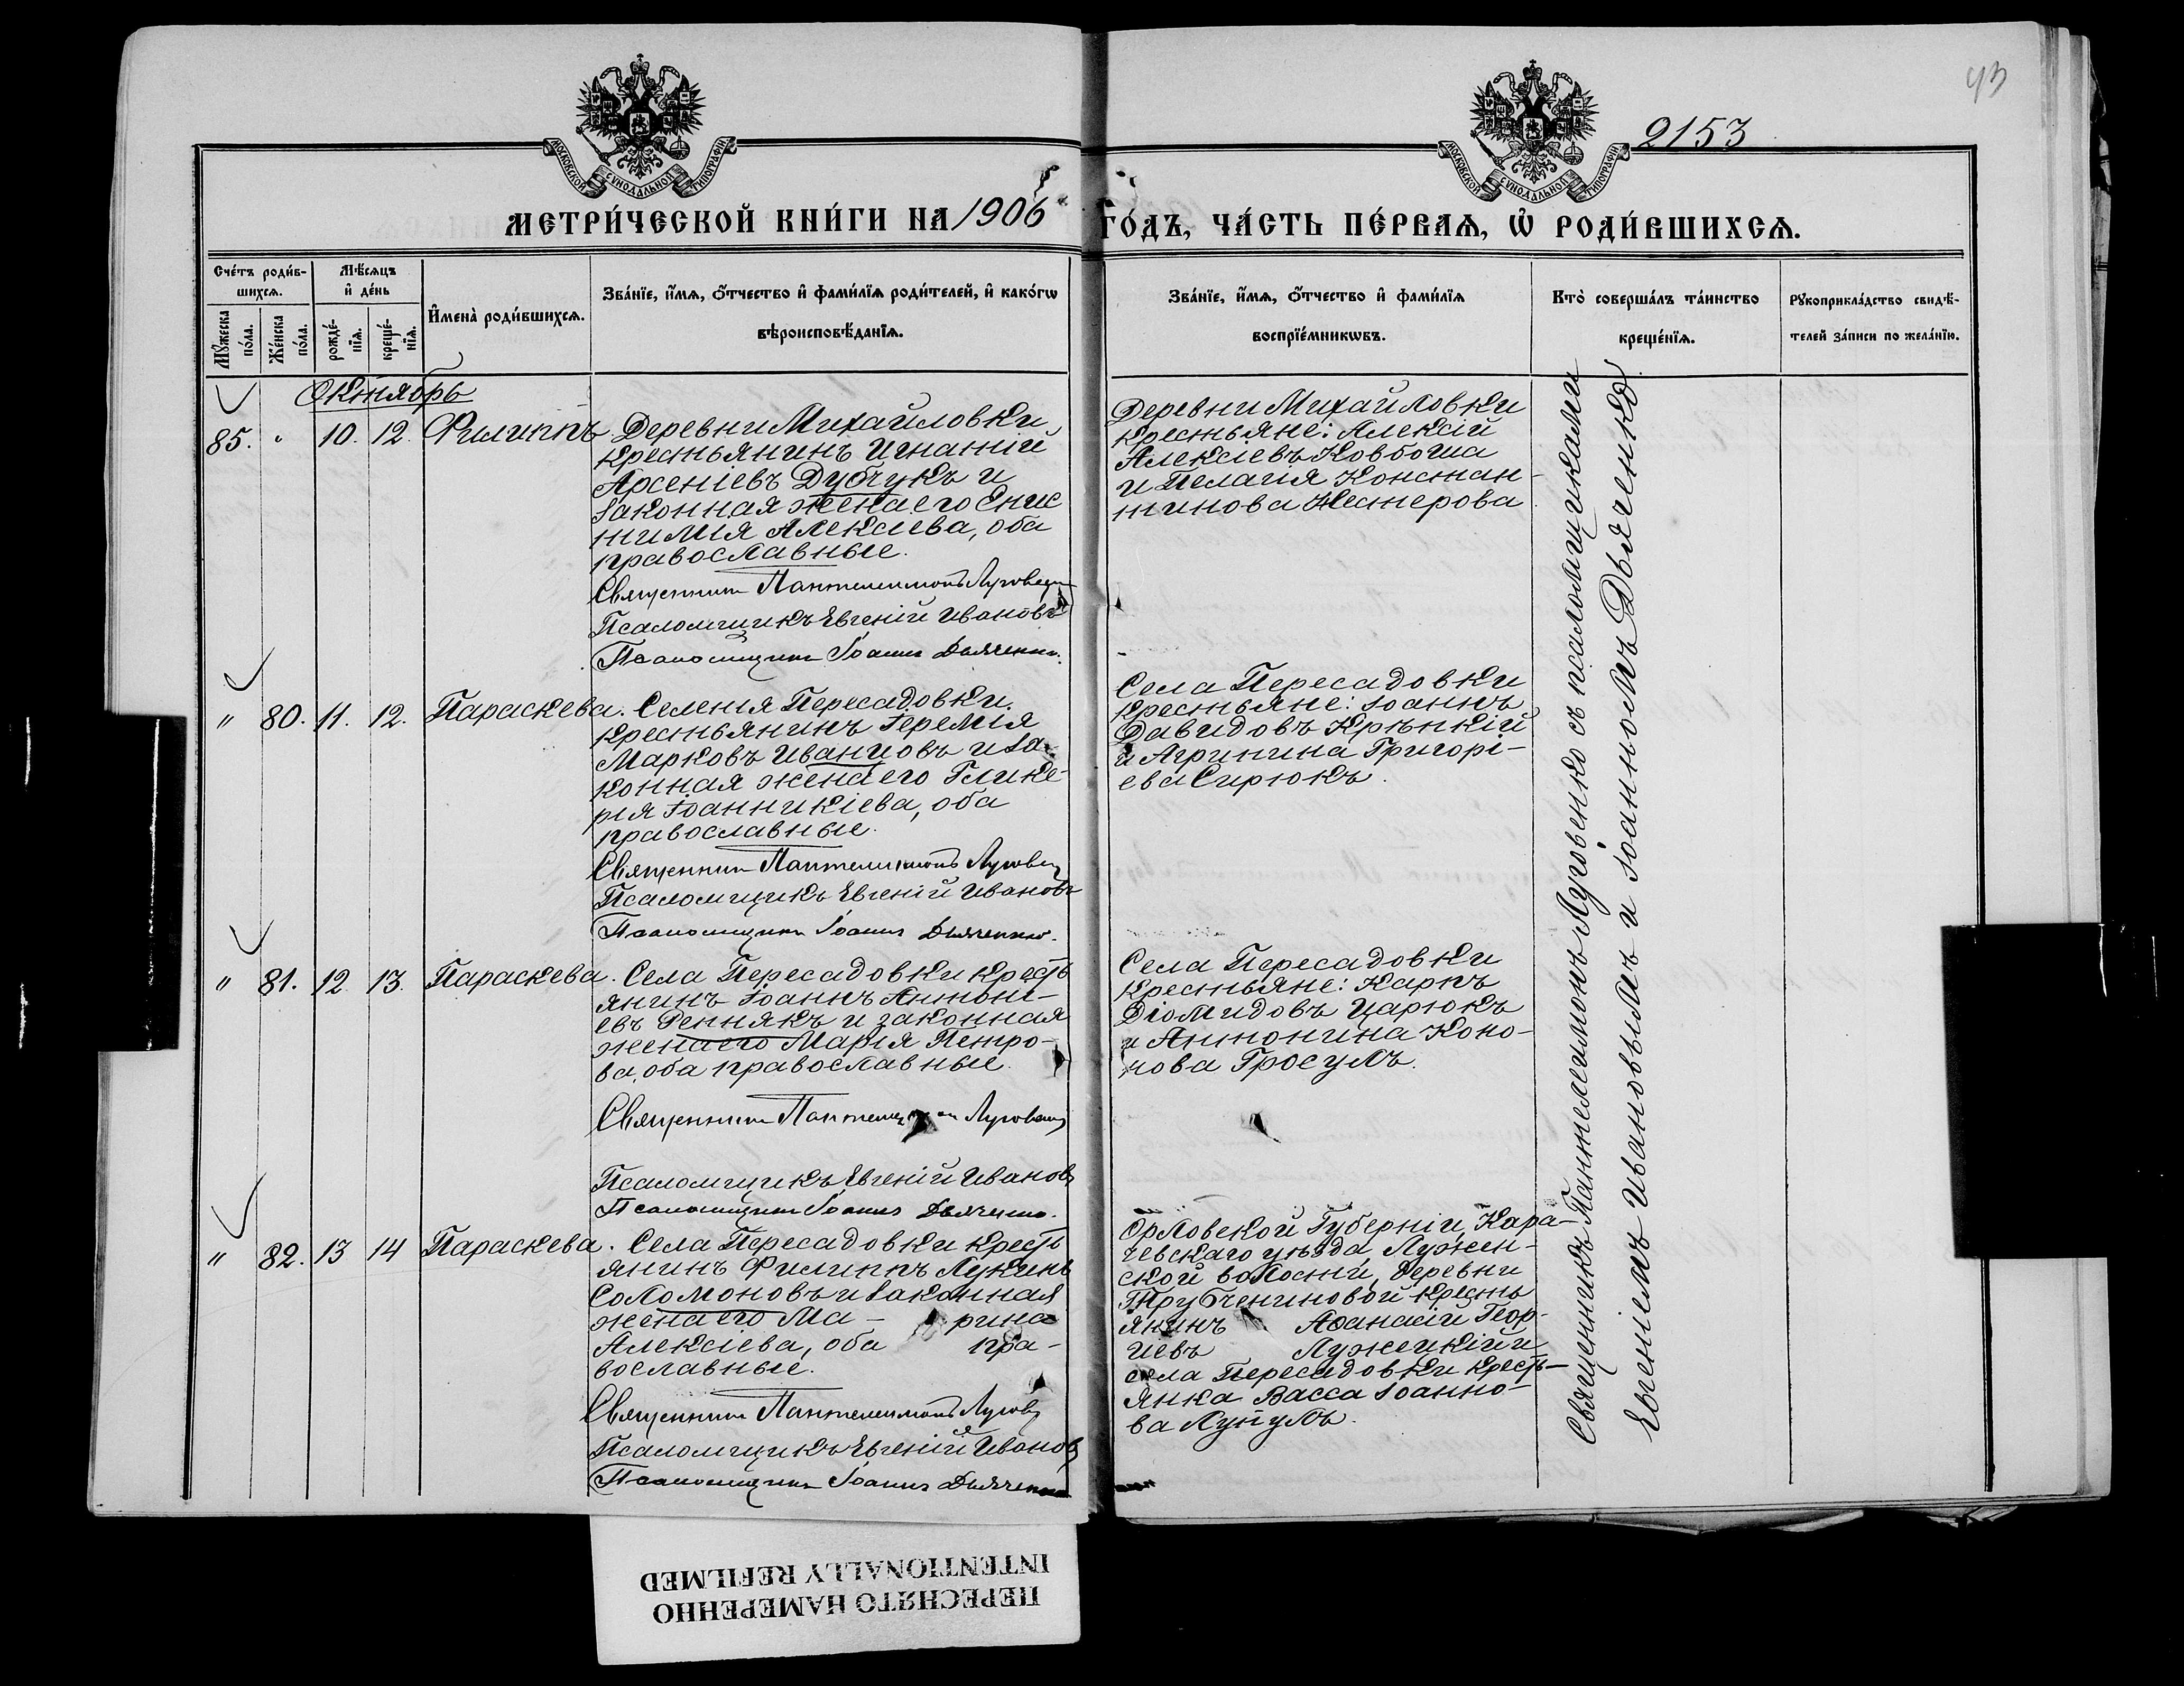 93
2153
МОСКОВСКОЙ СѴНОДАЛЬНОЙ ТИПОГРАФІИ
МОСКОВСКОЙ СѴНОДАЛЬНОЙ ТИПОГРАФІИ
МЕТРИ́ЧЕСКОЙ КНИ́ГИ НА 1906 ГО́ДЪ, ЧА́СТЬ ПЕ́РВАѦ, Ѡ҆ РОДИ́ВШИХСѦ.
Сче́тъ роди́в-
шихсѧ.
Мꙋ́жеска по́ла.
Же́нска по́ла.
Мѣ́сѧцъ и҆ де́нь
рожде́-
нїѧ.
креще́-
нїѧ.
И҆мена̀ роди́вшихсѧ.
Зва́нїе, и҆́мѧ, ѻ҆́тчество и҆ фами́лїѧ роди́телей, и҆ како́гѡ
вѣроисповѣ́данїѧ.
Зва́нїе, и҆́мѧ, ѻ҆́тчество и҆ фами́лїѧ
воспрїе́мникѡвъ.
Кто̀ соверша́лъ та́инство
креще́нїѧ.
Рꙋкоприкла́дство свидѣ́-
телей за́писи по жела́нїю.
Октябрь
85. " 10. 12. Филиппъ
Деревни Михайловки
крестьянинъ Игнатій
Арсеніевъ Дубчукъ и
законная жена его Епис
тимія Алексіева, оба
православные.
Священник Пантелеимонъ Луговен
Псаломщикъ Евгеній Ивановъ
Псаломщик Іоанн Дьяченко.
Деревни Михайловки
крестьяне: Алексій
Алексіевъ Ковбоша
и Пелагія Констан-
тинова Нестерова
" 80. 11. 12. Параскева.
Селенія Пересадовки
крестьянинъ Іеремія
Марковъ Иванцовъ и за-
конная жена его Глике-
рія Іоанникіева, оба
православные.
Священник Пантелеимонъ Луговен
Псаломщикъ Евгеній Ивановъ
Псаломщик Іоанн Дьяченко.
Села Пересадовки
крестьяне: Іоаннъ
Давидовъ Крѣпкій
и Агрипина Григорі-
ева Сирюкъ.
" 81. 12 13. Параскева.
Села Пересадовки кресть
янинъ Іоаннъ Антоні-
евъ Реннякъ и законная
жена его Марія Петро-
ва, оба православные.
Священник Пантелеимон Луговен
Псаломщикъ Евгеній Ивановъ
Псаломщик Іоанн Дьяченко.
Села Пересадовки
крестьяне: Карпъ
Діомидовъ Царюкъ
и Антонина Коно-
нова Гросулъ.
" 82. 13 14 Параскева.
Села Пересадовки кресть
янинъ Филиппъ Лукинъ
Соломоновъ и законная
жена его Ма- рина
Алексіева, оба пра-
вославные.
Священник Пантелеимонъ Лугов
Псаломщикъ Евгеній Ивановъ
Псаломщик Іоанн Дьяченко
Орловской Губерніи, Кара-
чевскаго уѣзда, Лужен-
ской волости, деревни
Трубчениновой кресть
янинъ Аѳанасій Геор-
гіевъ Лужецкій и
села Пересадовки кресть-
янка Васса Іоанно-
ва Лупулъ.
Священникъ Пантелеимонъ Луговенко съ псаломщиками
Евгеніемъ Ивановымъ и Іоанномъ Дьяченко
ПЕРЕСНЯТО НАМЕРЕННО
INTENTIONALLY REFILMED